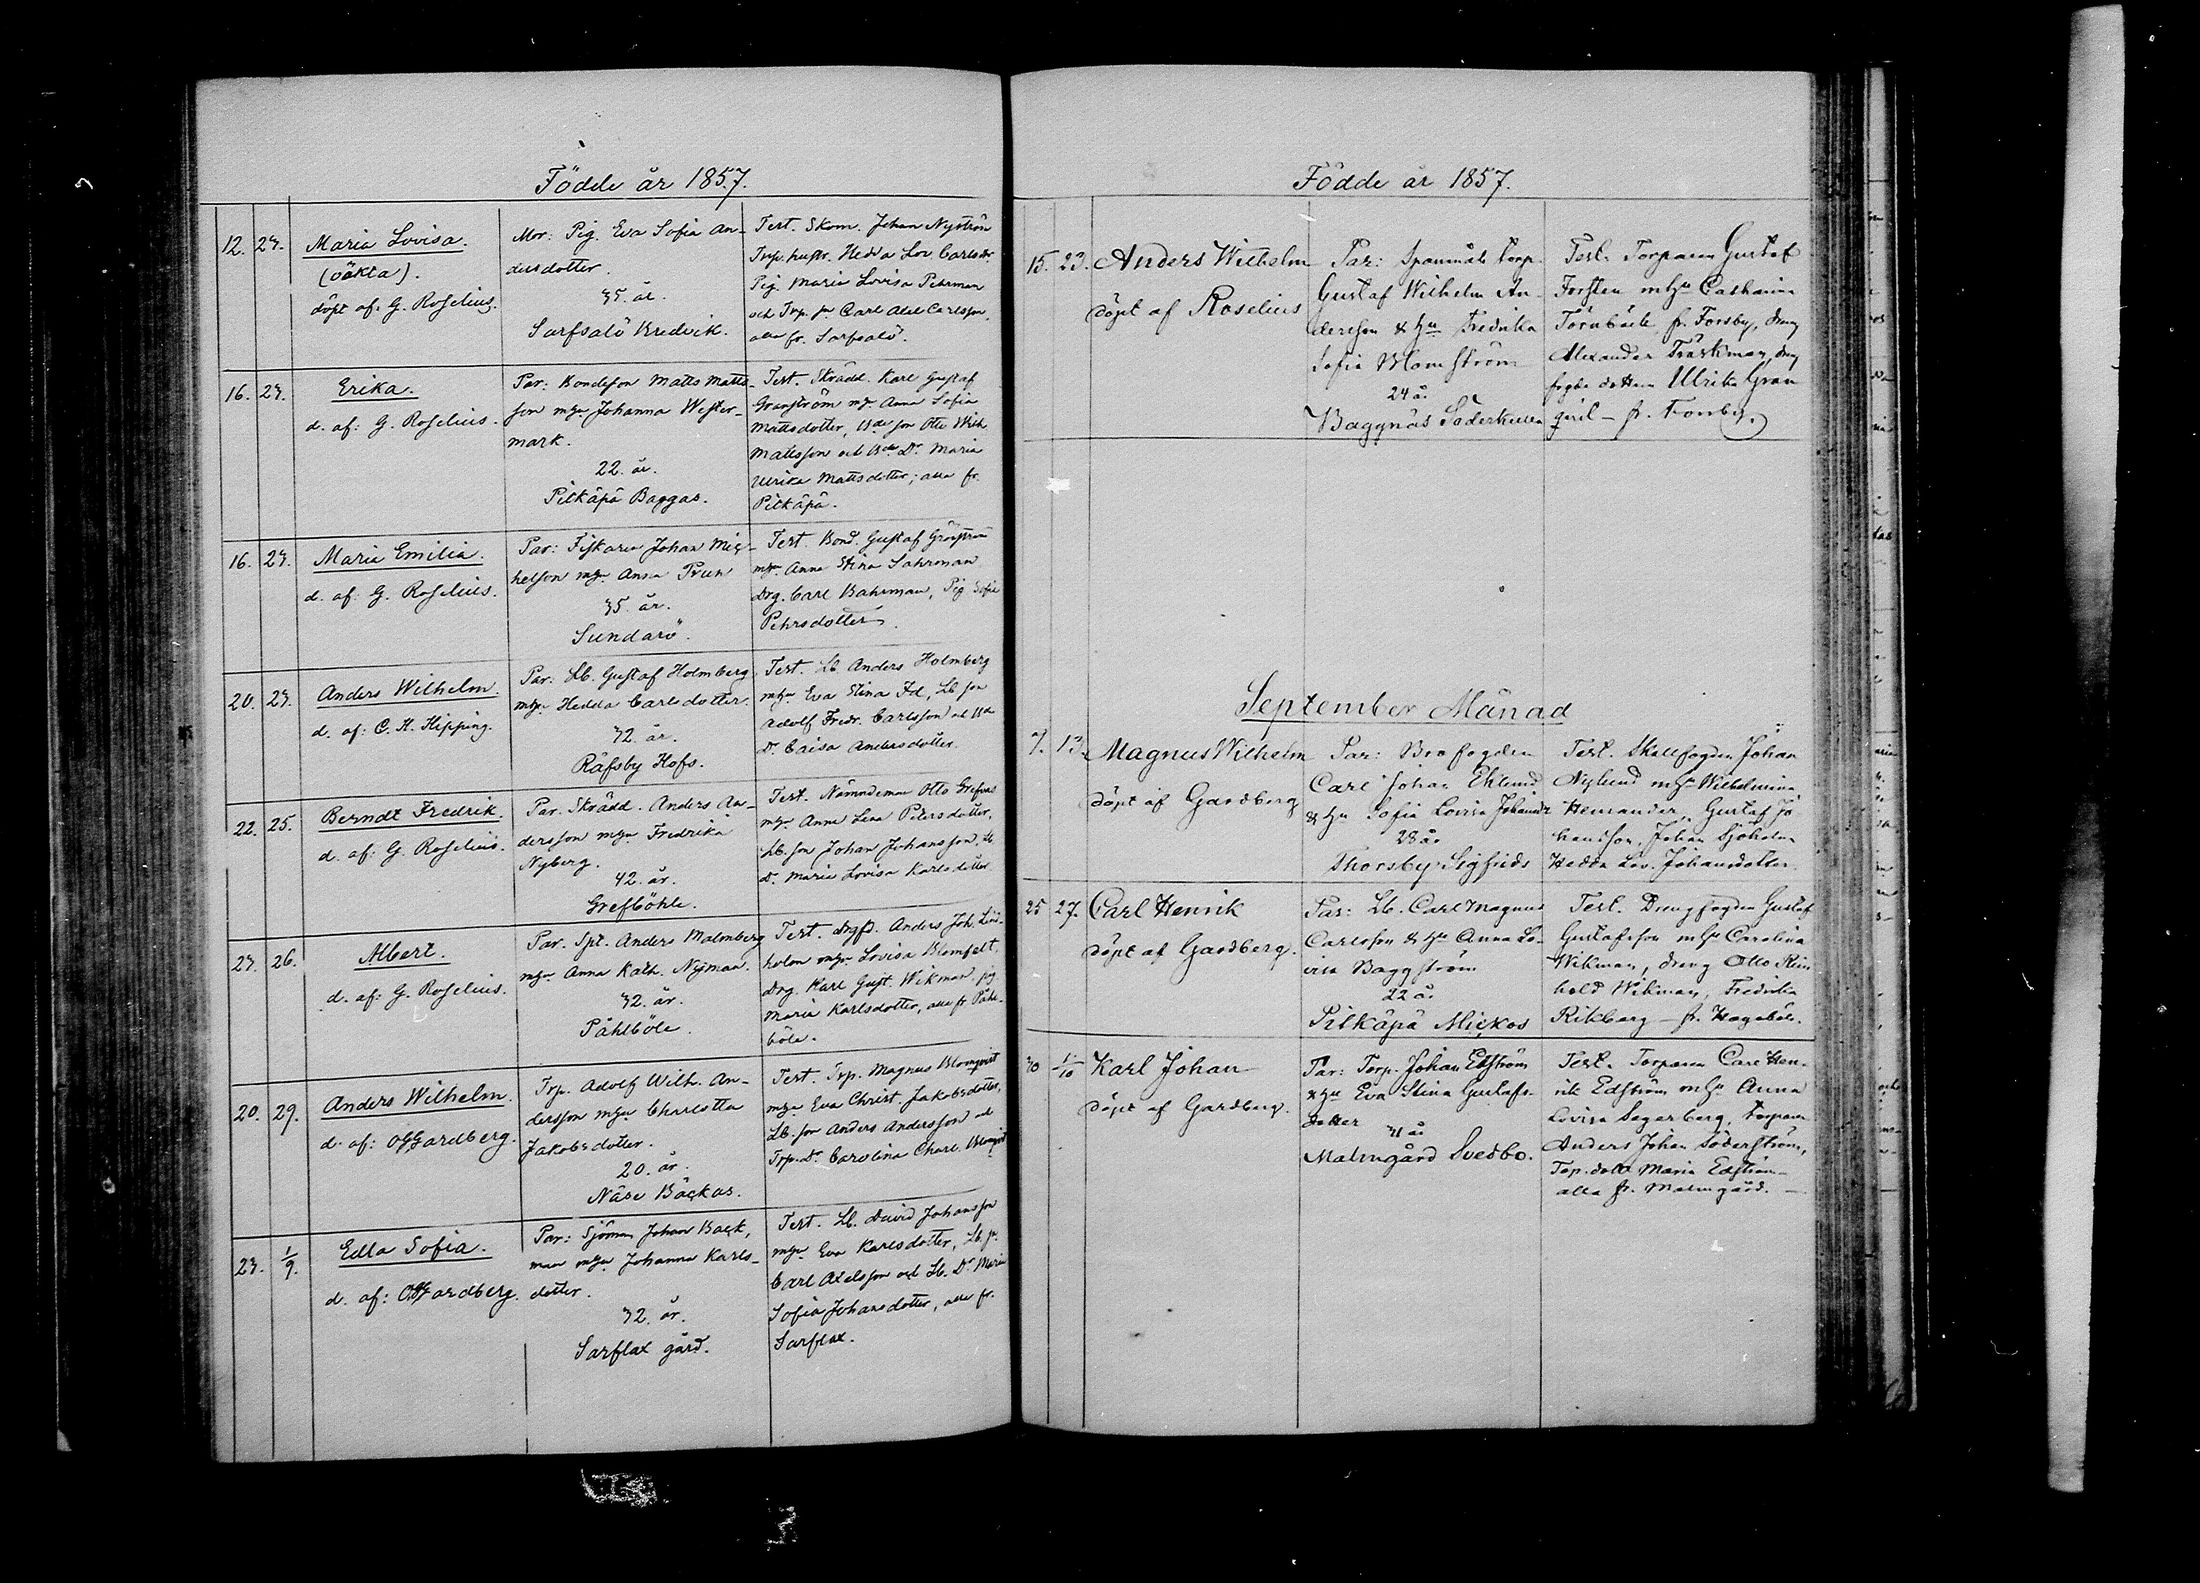 Födde år 1857.
12. 23. Maria Lovisa.
(oäkta).
döpt af: G. Roselius.
Mor: Pig. Eva Sofia An-
dersdotter.
35. år.
Sarfsalö Bredvik.
Test. Skom. Johan Nyström
Trp. hustr. Hedda Lov. Carlsdr
Pig. Maria Lovisa Pehrman
och Trp. son Carl Axel Carlsson,
alla fr. Sarfsalö.
16. 23. Erika.
d. af: G. Roselius.
Par: Bondeson Matts Matts-
son m hu Johanna Wester-
mark.
22. år.
Pitkäpä Baggas.
Test. Skrädd. Karl Gustaf
Granström m h. Anna Sofia
Mattsdotter, Bde son Otto Wilh.
Mattsson och Bde Dr Maria
Ulrika Mattsdotter; alla fr.
Pitkäpä.
16. 23. Maria Emilia.
d. af: G. Roselius.
Par: Fiskaren Johan Mic-
helson m hu Anna Prun
35. år.
Sundarö.
Test. Bond. Gustaf Grönström
m hu Anna Stina Sahrman
Drg. Carl Bahrman, Pig. Sofia
Pehrsdotter.
20. 23. Anders Wilhelm.
d. af: C. H. Hipping.
Par: Lb. Gustaf Holmberg
m hu Hedda Carlsdotter.
32. år.
Räfsby Hofs.
Test. Lb Anders Holmberg
m hu Eva Stina Fd, Lb son
Adolf Fredr. Carlsson och Bde
Dr Caisa Andersdotter.
22. 25. Berndt Fredrik.
d. af: G. Roselius.
Par. Skrädd. Anders An-
dersson m hu Fredrika
Nyberg.
42. år.
Grefböhle.
Test. Nämndeman Otto Grefvas
m hu Anna Lena Petersdotter,
Lb. son Johan Johansson, Lb
Dr Maria Lovisa Karlsdotter
23. 26. Albert.
d. af: G. Roselius.
Par. Spt. Anders Malmberg
m hu Anna Kath. Nyman.
32. år.
Påhlböle.
Test. drgfd. Anders Joh. Lind-
holm m hu Lovisa Blomfelt,
Drg. Karl Gust. Wikman, pig
Maria Karlsdotter, alla fr Påhl-
böle.
20. 29. Anders Wilhelm.
d. af: O G Gardberg.
Trp. Adolf Wilh. An-
dersson m hu Charlotta
Jakobsdotter.
20. år.
Näse Bäckas.
Test. Trp. Magnus Blomqvist
m hu Eva Christ. Jakobsdotter,
Lb. son Anders Andersson och
Trp. Dr Carolina Charl. Blomqvist
23. 1/9. Edla Sofia.
d. af: O G Gardberg.
Par: Sjöman Johan Back-
man m hu Johanna Karls-
dotter.
32. år.
Sarflax gård.
Test. Lb. David Johansson
m hu Eva Karlsdotter, Lb. sn
Carl Axelsson och Lb. Dr Maria
Sofia Johansdotter, alla fr.
Sarflax.
Födde år 1857.
15. 23. Anders Wilhelm
döpt af Roselius
Par: Spanmåls Torp.
Gustaf Wilhelm An-
dersson & hu Fredrika
Sofia Blomström
24 å.
Baggnäs Söderkulla
Test. Torparen Gustaf
Forstén m hu Catharina
Törnbäck fr. Forsby, dräng
Alexander Träskman, dräng
fogde dottern Ulrika Gran
qvist - fr. Forsby.
September Månad
7. 13. Magnus Wilhelm
döpt af Gardberg
Par: Brofogden
Carl Johan Eklund
& hu Sofia Lovisa Johansdr
28 år
Thorsby Sigfrids
Test. Skallfogden Johan
Nylund m hu Wilhelmina
Hemander, Gustaf Jo
hansson, Johan Sjöholm
Hedda Lov. Johansdotter.
25 27. Carl Henrik
döpt af Gardberg.
Par: Lb. Carl Magnus
Carlsson & hu Anna Lo-
visa Baggström
22 å.
Pitkäpä Mickos
Test. Drängfogden Gustaf
Gustafsson m hu Carolina
Wikman, dräng Otto Rein
hold Wikman, Fredrika
Rikberg - fr. Hagaböle.
30 1/10 Karl Johan
döpt af Gardberg.
Par: Torp. Johan Edström
& hu Eva Stina Gustafs-
dotter 31 år
Malmgård Svedbo.
Test. Torparen Carl Hen-
rik Edström m hu Anna
Lovisa Segerberg, torparen
Anders Johan Söderström,
Torp. dottr Maria Edström -
alla fr. Malmgård. -